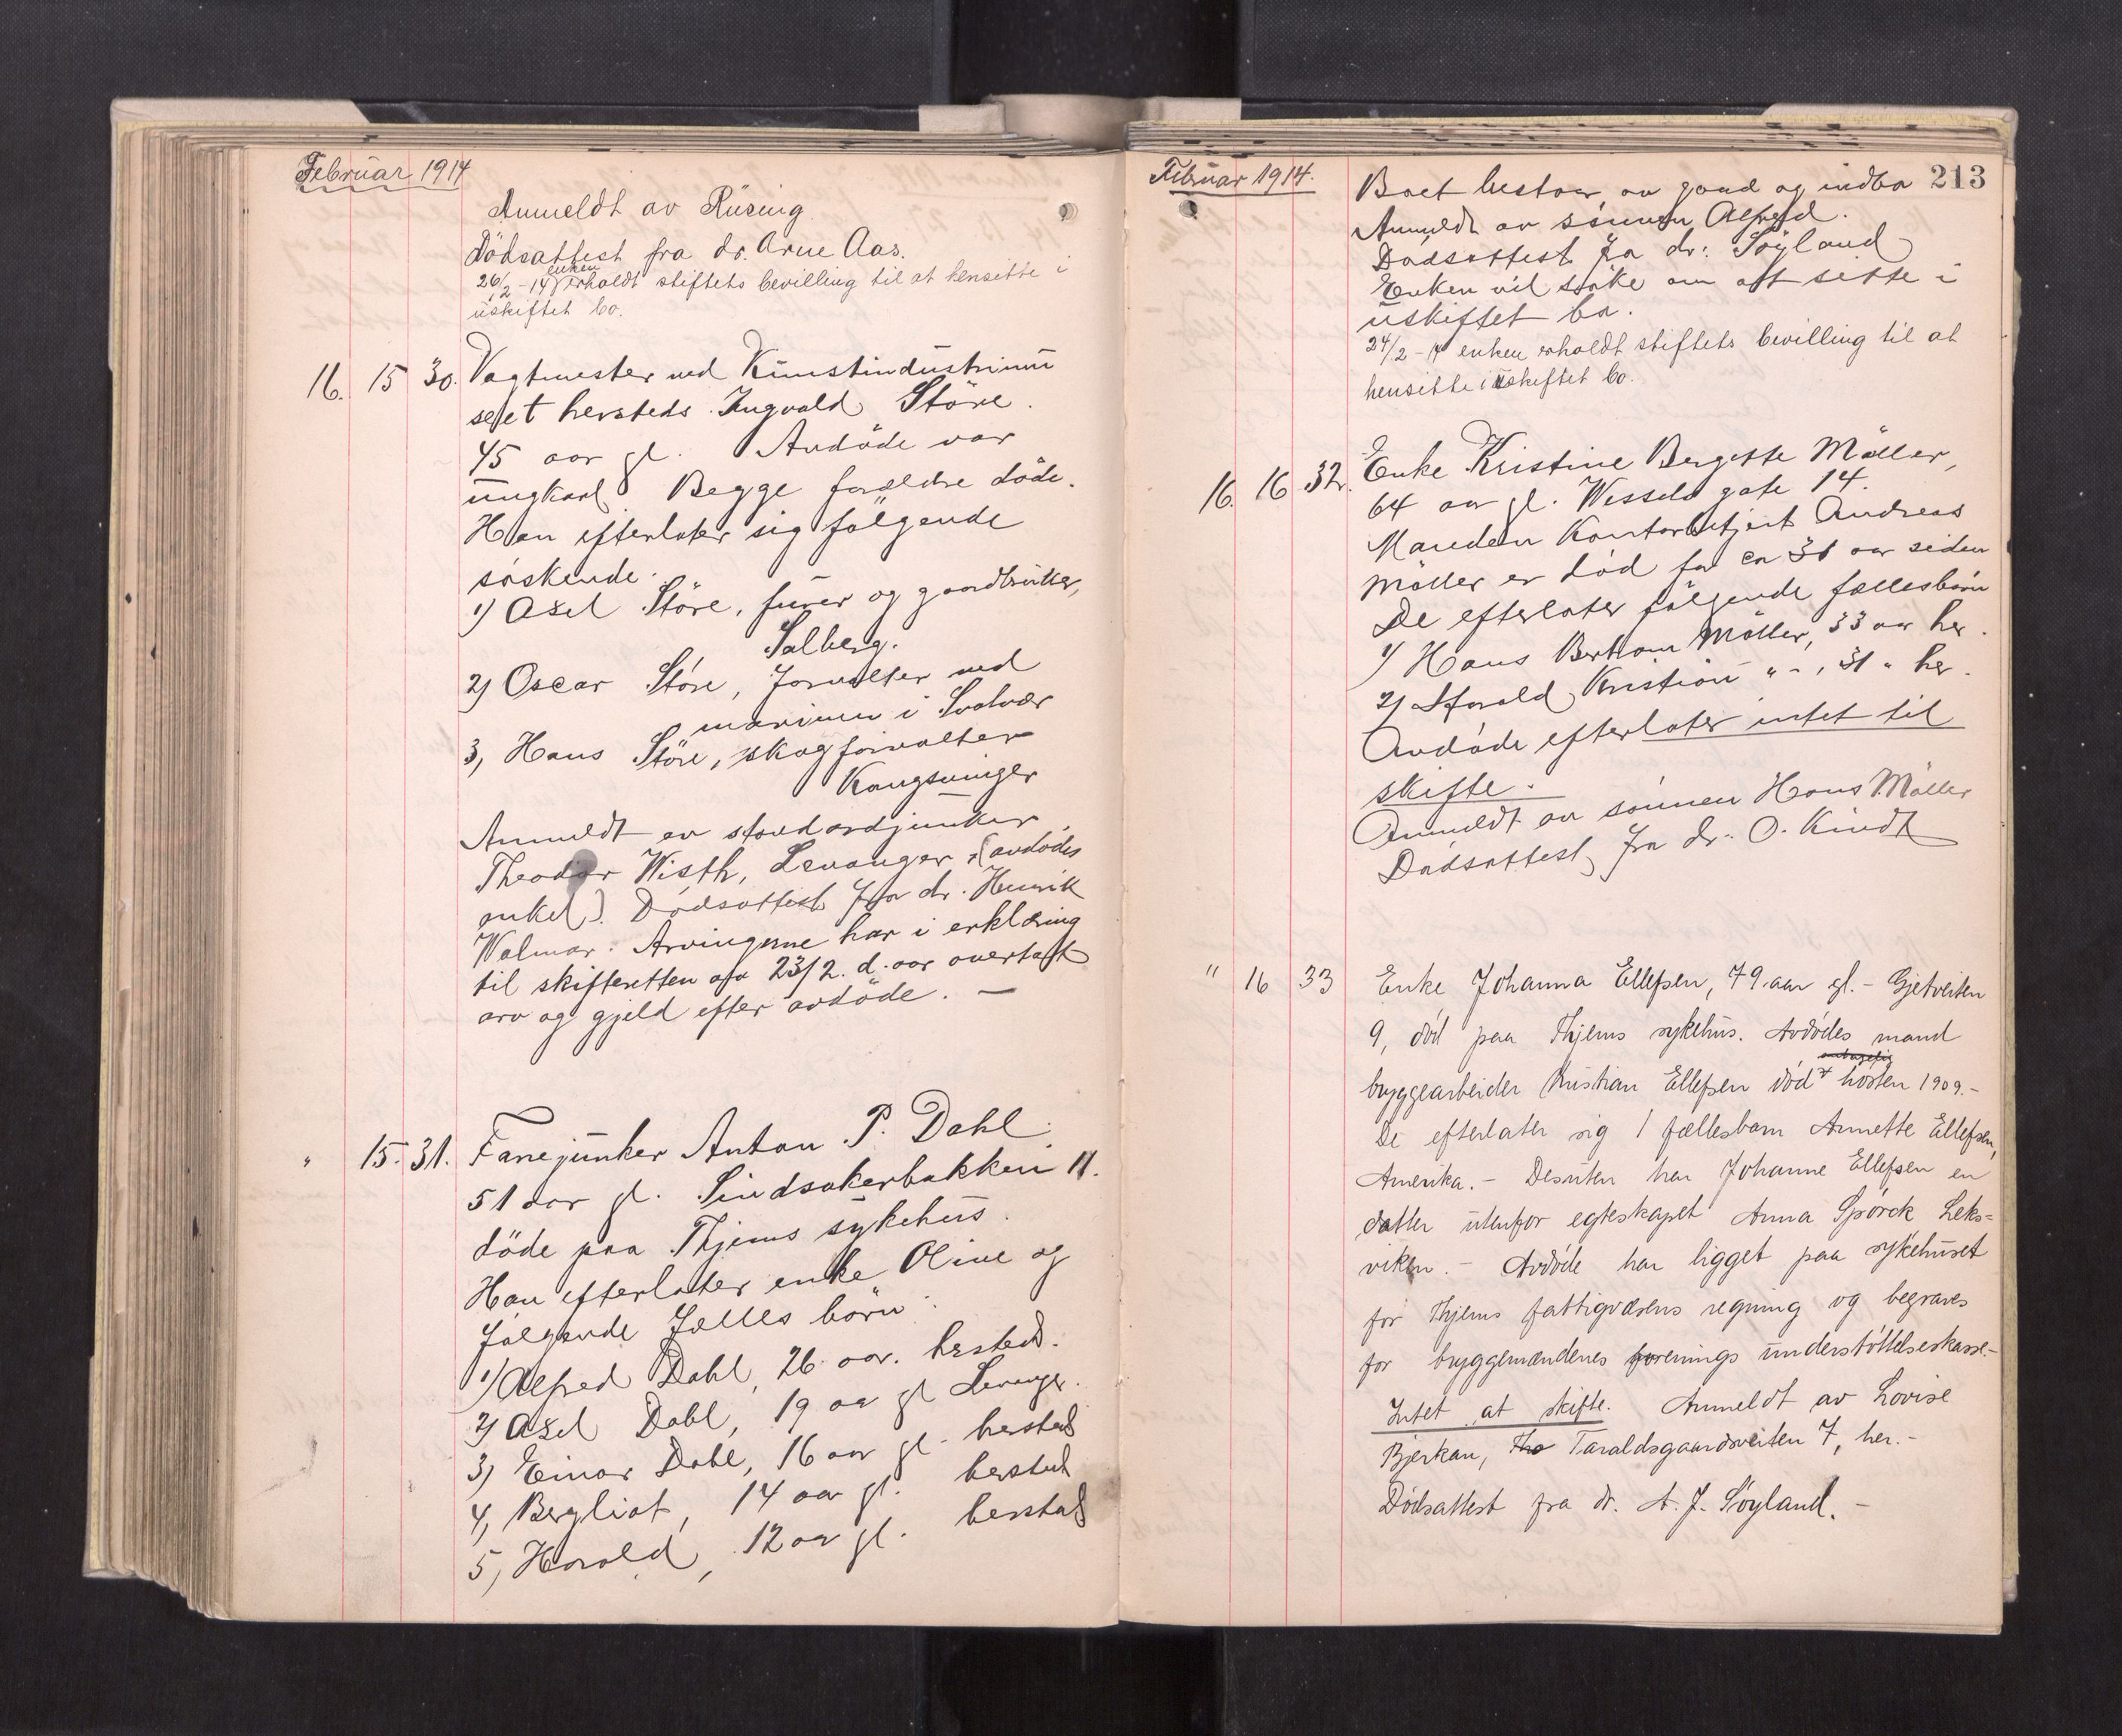 Februar 1914
Anmeldt av Rüsing
Dödsattest fra dr. Arne Aas.
enken
26/2-14 erholdt stiftets bevilling til at hensitte i
uskiftet bo.
16. 15 30. Vagtmester ved Kunstindustrimu
seet hersteds Ingvald Störe.
45 aar gl. Avdöde var
ungkarl Begge forældre döde.
Han efterlater sig fölgende
söskende.
1) Axel Störe, furer og gaardbruker,
Salberg.
2) Oscar Störe, forvalter ved
marinen i Svolvær
3, Hans Störe, skogforvalter
Kongsvinger
Anmeldt av standardjunker
Theodor Wisth, Levanger, (avdödes
onkel). Dödsattest fra dr. Henrik
Walmar. Arvingerne har i erklæring
til skifteretten av 23/2. d. aar overtat
arv og gjeld efter avdöde. —
" 15. 31. Fanejunker Anton P. Dahl.
51 aar gl. Sindsakerbakken 11.
döde paa Thjems sykehus.
Han efterlater enke Oline og
fölgende fælles börn:
1) Alfred Dahl, 26 aar. hersteds.
2) Axel Dahl, 19 aar gl Levanger.
3) Einar Dahl, 16 aar gl. hersteds
4, Bergliot, 14 aar gl. hersteds
5, Harald, 12 aar gl. hersteds
Februar 1914.
213
Boet bestaar av gaard og indbo
Anmeldt av sönnen Alfred.
Dödsattest fra dr: Söyland
Enken vil söke om att sitte i
uskiftet bo.
24/2-14 enken erholdt stiftets bevilling til at
hensitte i uskiftet bo.
16. 16 32. Enke Kristine Bergitte Möller,
64 aar gl. Wessels gate 14.
Manden Kontorbetjent Andreas
Möller er död for ca 31 aar siden
De efterlater fölgende fællesbörn
1) Hans Bertram Möller, 33 aar her.
2) Harald Kristian " - , 31 " her.
Avdöde efterlater intet til
skifte.
Anmeldt av sönnen Hans Möller
Dödsattest fra dr. O. Kindt
" 16 33 Enke Johanna Ellefsen, 79 aar gl. - Gjetveiten
9, död paa Thjems sykehus. Avdödes mand
bryggearbeider Kristian Ellefsen död hösten 1909.-
De efterlater sig 1 fællesbarn Annette Ellefsen,
Amerika. - Desuten har Johanne Ellefsen en
datter utenfor egteskapet Anna Spörck Leks=
viken. - Avdöde har ligget paa sykehuset
for Thjems fattigvæsens regning og begraves
for bryggemændenes forenings understöttelseskasse.-
Intet at skifte. Anmeldt av Lovise
Bjerkan, Tho Taraldsgaardsveiten 7, her.-
Dödsattest fra dr. A. J. Söyland. -